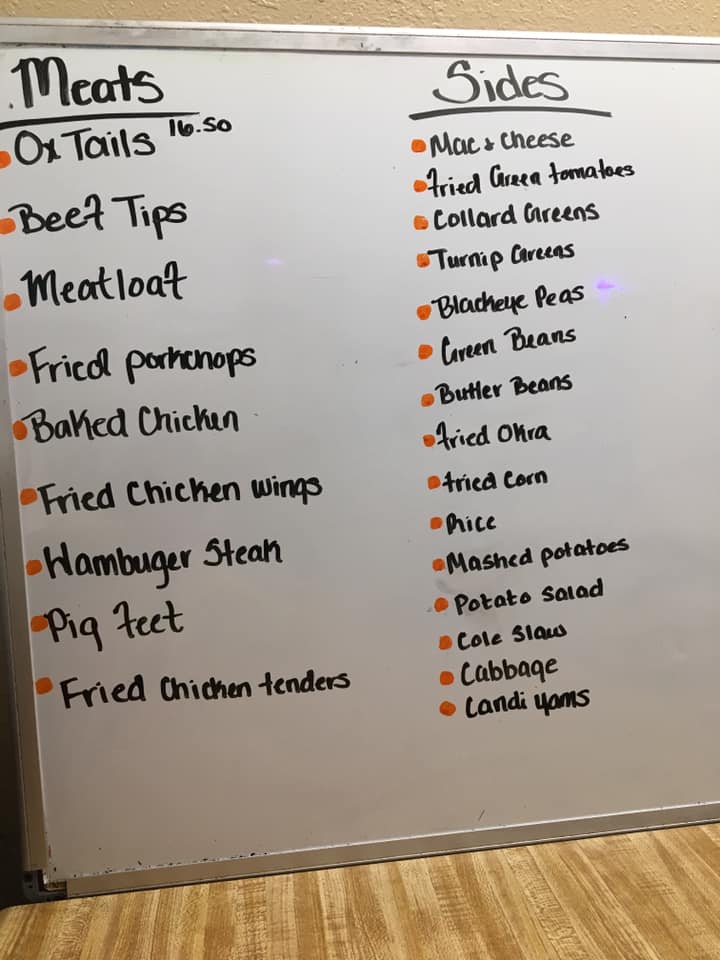 Meats
Ox Tails 16.50
Beef Tips
Meatloaf
Fried porkchops
Baked Chicken
Fried Chicken wings
Hambuger Steak
Pig feet
Fried Chicken tenders
Sides
Mac & Cheese
fried Green tomatoes
Collard Greens
Turnip Greens
Blackeye Peas
Green Beans
Butter Beans
fried Okra
fried Corn
Rice
Mashed potatoes
Potato Salad
Cole Slaw
Cabbage
Candi yams